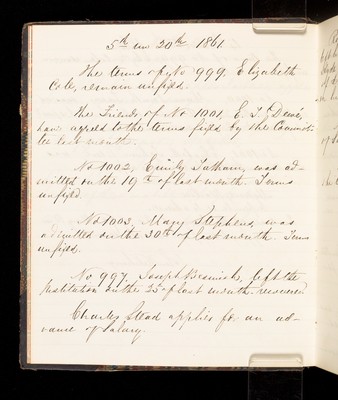 5th mo 20th 1861
The terms of No 999, Elizabeth
Cole, remain unfixed.
The Friends of No 1001, E. T.
have agreed to the terms fixed by the Commit-
tee last month.
No 1002, Emily Tatham, was ad-
mitted on the 19th of last month. Terms
unfixed.
No 1003, Mary Stephens, was
admitted on the 30th of last month. Terms
unfixed.
No 997, Joseph left the
Institution on the 25th of last month recovered
Charles Stead applies for an ad-
vance of salary.